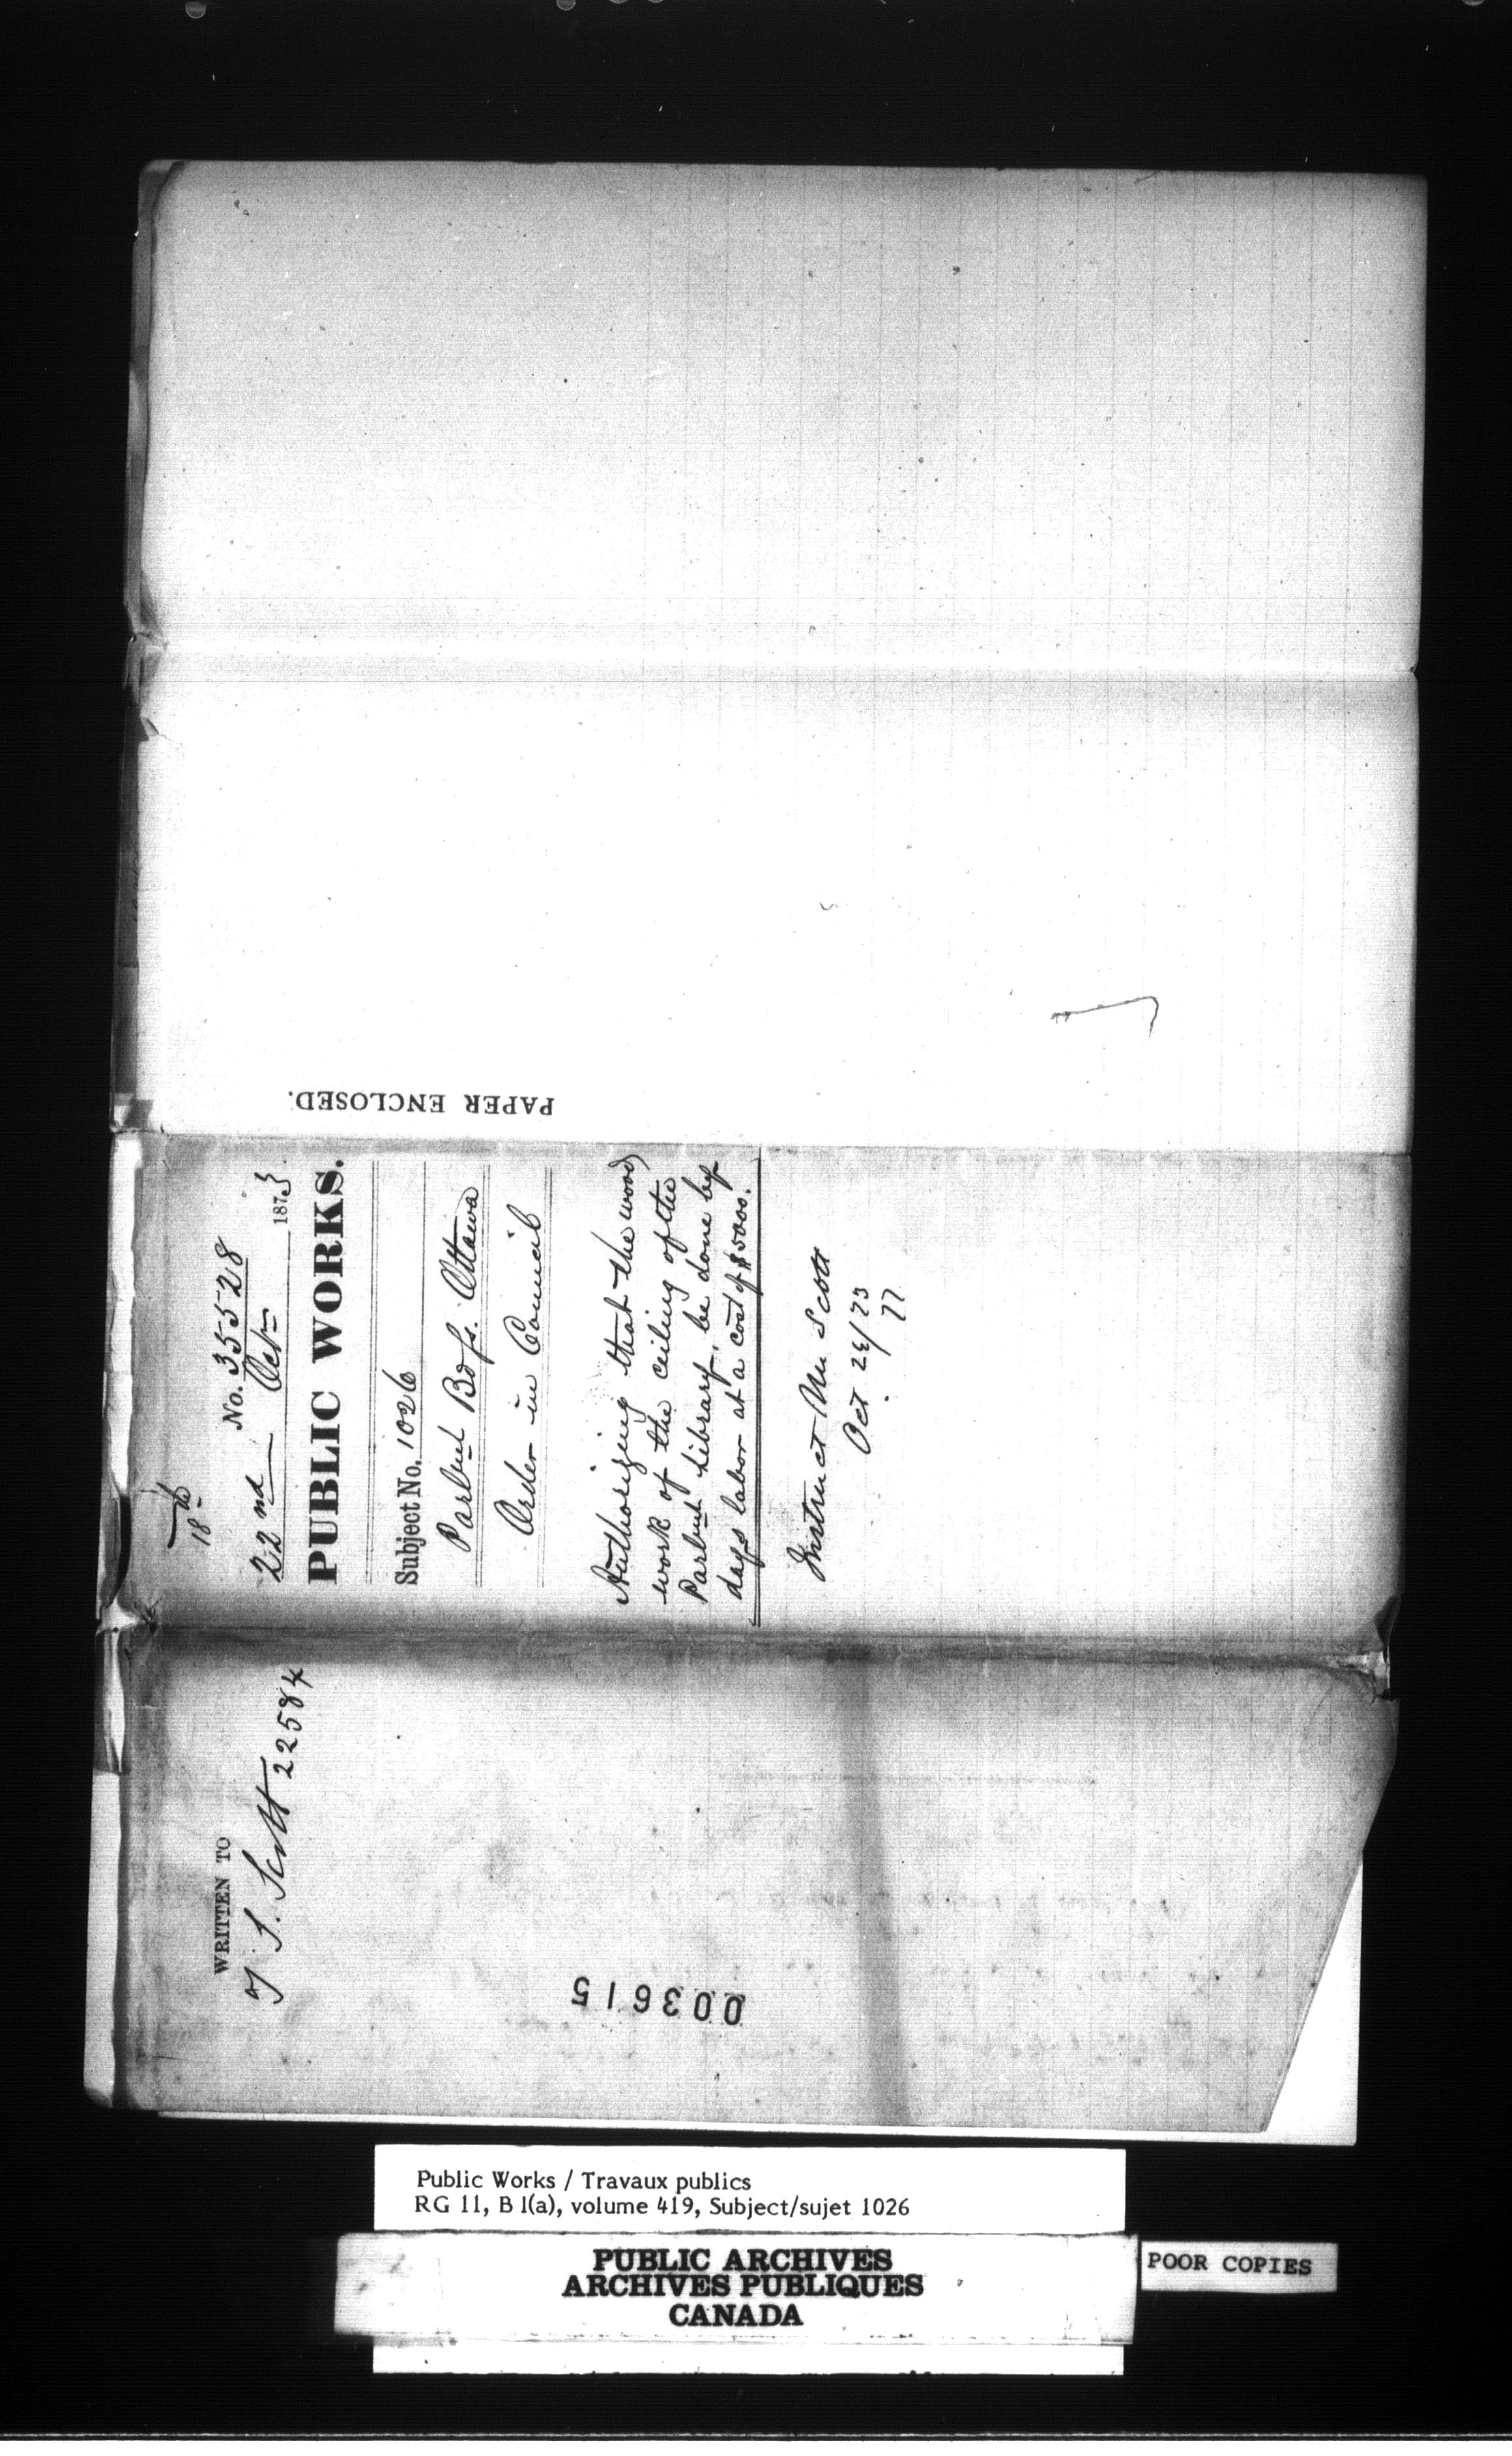 18th
No. 35528
22nd Octr 1873
PUBLIC WORKS.
Subject No. 1026
Parbut Bdgs. Ottawa
Order in Council
Authorizing that the wood
work of the ceiling of the
Parbut Library, be done by
days labor at a cost of $5000.
Instruct Mr Scott
Oct. 26/73
PAPER ENCLOSED.
WRITTEN TO
T. S. Scott 22584
003615
Public Works / Travaux publics
RG 11, B 1(a), volume 419, Subject/sujet 1026
PUBLIC ARCHIVES
ARCHIVES PUBLIQUES
CANADA
POOR COPIES